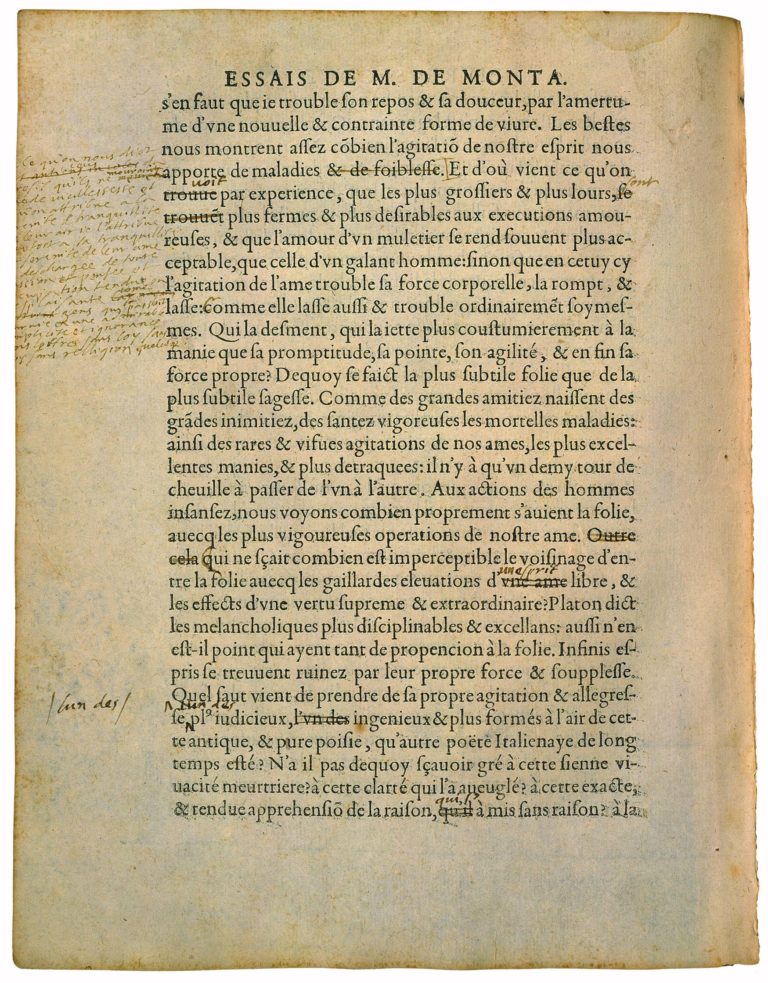 ESSAIS DE M. DE MONTA.
s'en faut que ie trouble ſon repos & ſa douceur, par l'amertu-
me d'vne nouuelle & contrainte forme de viure. Les beſtes
nous montrent aſſez cõbien l'agitatiõ de noſtre eſprit nous
apporte de maladies & de foibleſſe. Et d'où vient ce qu'on
voit
trouue par experience, que les plus groſſiers & plus lours, ſe
sont
trouuẽt plus fermes & plus deſirables aux executions amou-
reuſes, & que l'amour d'vn muletier ſe rend ſouuent plus ac-
ceptable, que celle d'vn galant homme: ſinon que en cetuy cy
l'agitation de l'ame trouble ſa force corporelle, la rompt, &
laſſe: Comme elle laſſe auſſi & trouble ordinairemẽt ſoymeſ-
mes. Qui la deſment, qui la iette plus couſtumierement à la
manie que ſa promptitude, ſa pointe, ſon agilité, & en fin ſa
force propre? Dequoy ſe faict la plus ſubtile folie que de la
plus ſubtile ſageſſe. Comme des grandes amitiez naiſſent des
grãdes inimitiez, des ſantez vigoreuſes les mortelles maladies:
ainſi des rares & vifues agitations de nos ames, les plus excel-
lentes manies, & plus detraquees: il n'y à qu'vn demy tour de
cheuille à paſſer de l'vn à l'autre. Aux actions des hommes
inſanſez, nous voyons combien proprement s'auient la folie,
auecq les plus vigoureuſes operations de noſtre ame. Outre
cela Qui ne ſçait combien eſt imperceptible le voiſinage d'en-
un esprit
tre la folie auecq les gaillardes eleuations d'vne ame libre, &
les effects d'vne vertu ſupreme & extraordinaire? Platon dict
les melancholiques plus diſciplinables & excellans: auſſi n'en
eſt-il point qui ayent tant de propencion à la folie. Infinis eſ-
pris ſe treuuent ruinez par leur propre force & ſouppleſſe.
Quel ſaut vient de prendre de ſa propre agitation & allegreſ-
l'un des
ſe, plꝰ iudicieux, l'vn des ingenieux & plus formés à l'air de cet-
te antique, & pure poiſie, qu'autre poëte Italien aye de long
temps eſté? N'a il pas dequoy ſçauoir gré à cette ſienne vi-
uacité meurtriere? à cette clarté qui l'a aueuglé? à cette exacte,
& tendue apprehenſiõ de la raiſon, qui l'a mis ſans raiſon? à la
Ce qu'on nous dict
/ l'un des /